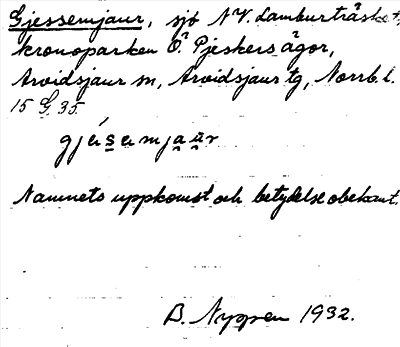 Gjessemjaur, sjö N.V. Lamburträsket,
kronoparken Ö. Pjeskers ägor,
Arvidsjaur sn, Arvidsjaur tg, Norrb. l.
15 G 35.
Namnets uppkomst och betydelse obekant.
B. Nyppen 1932.